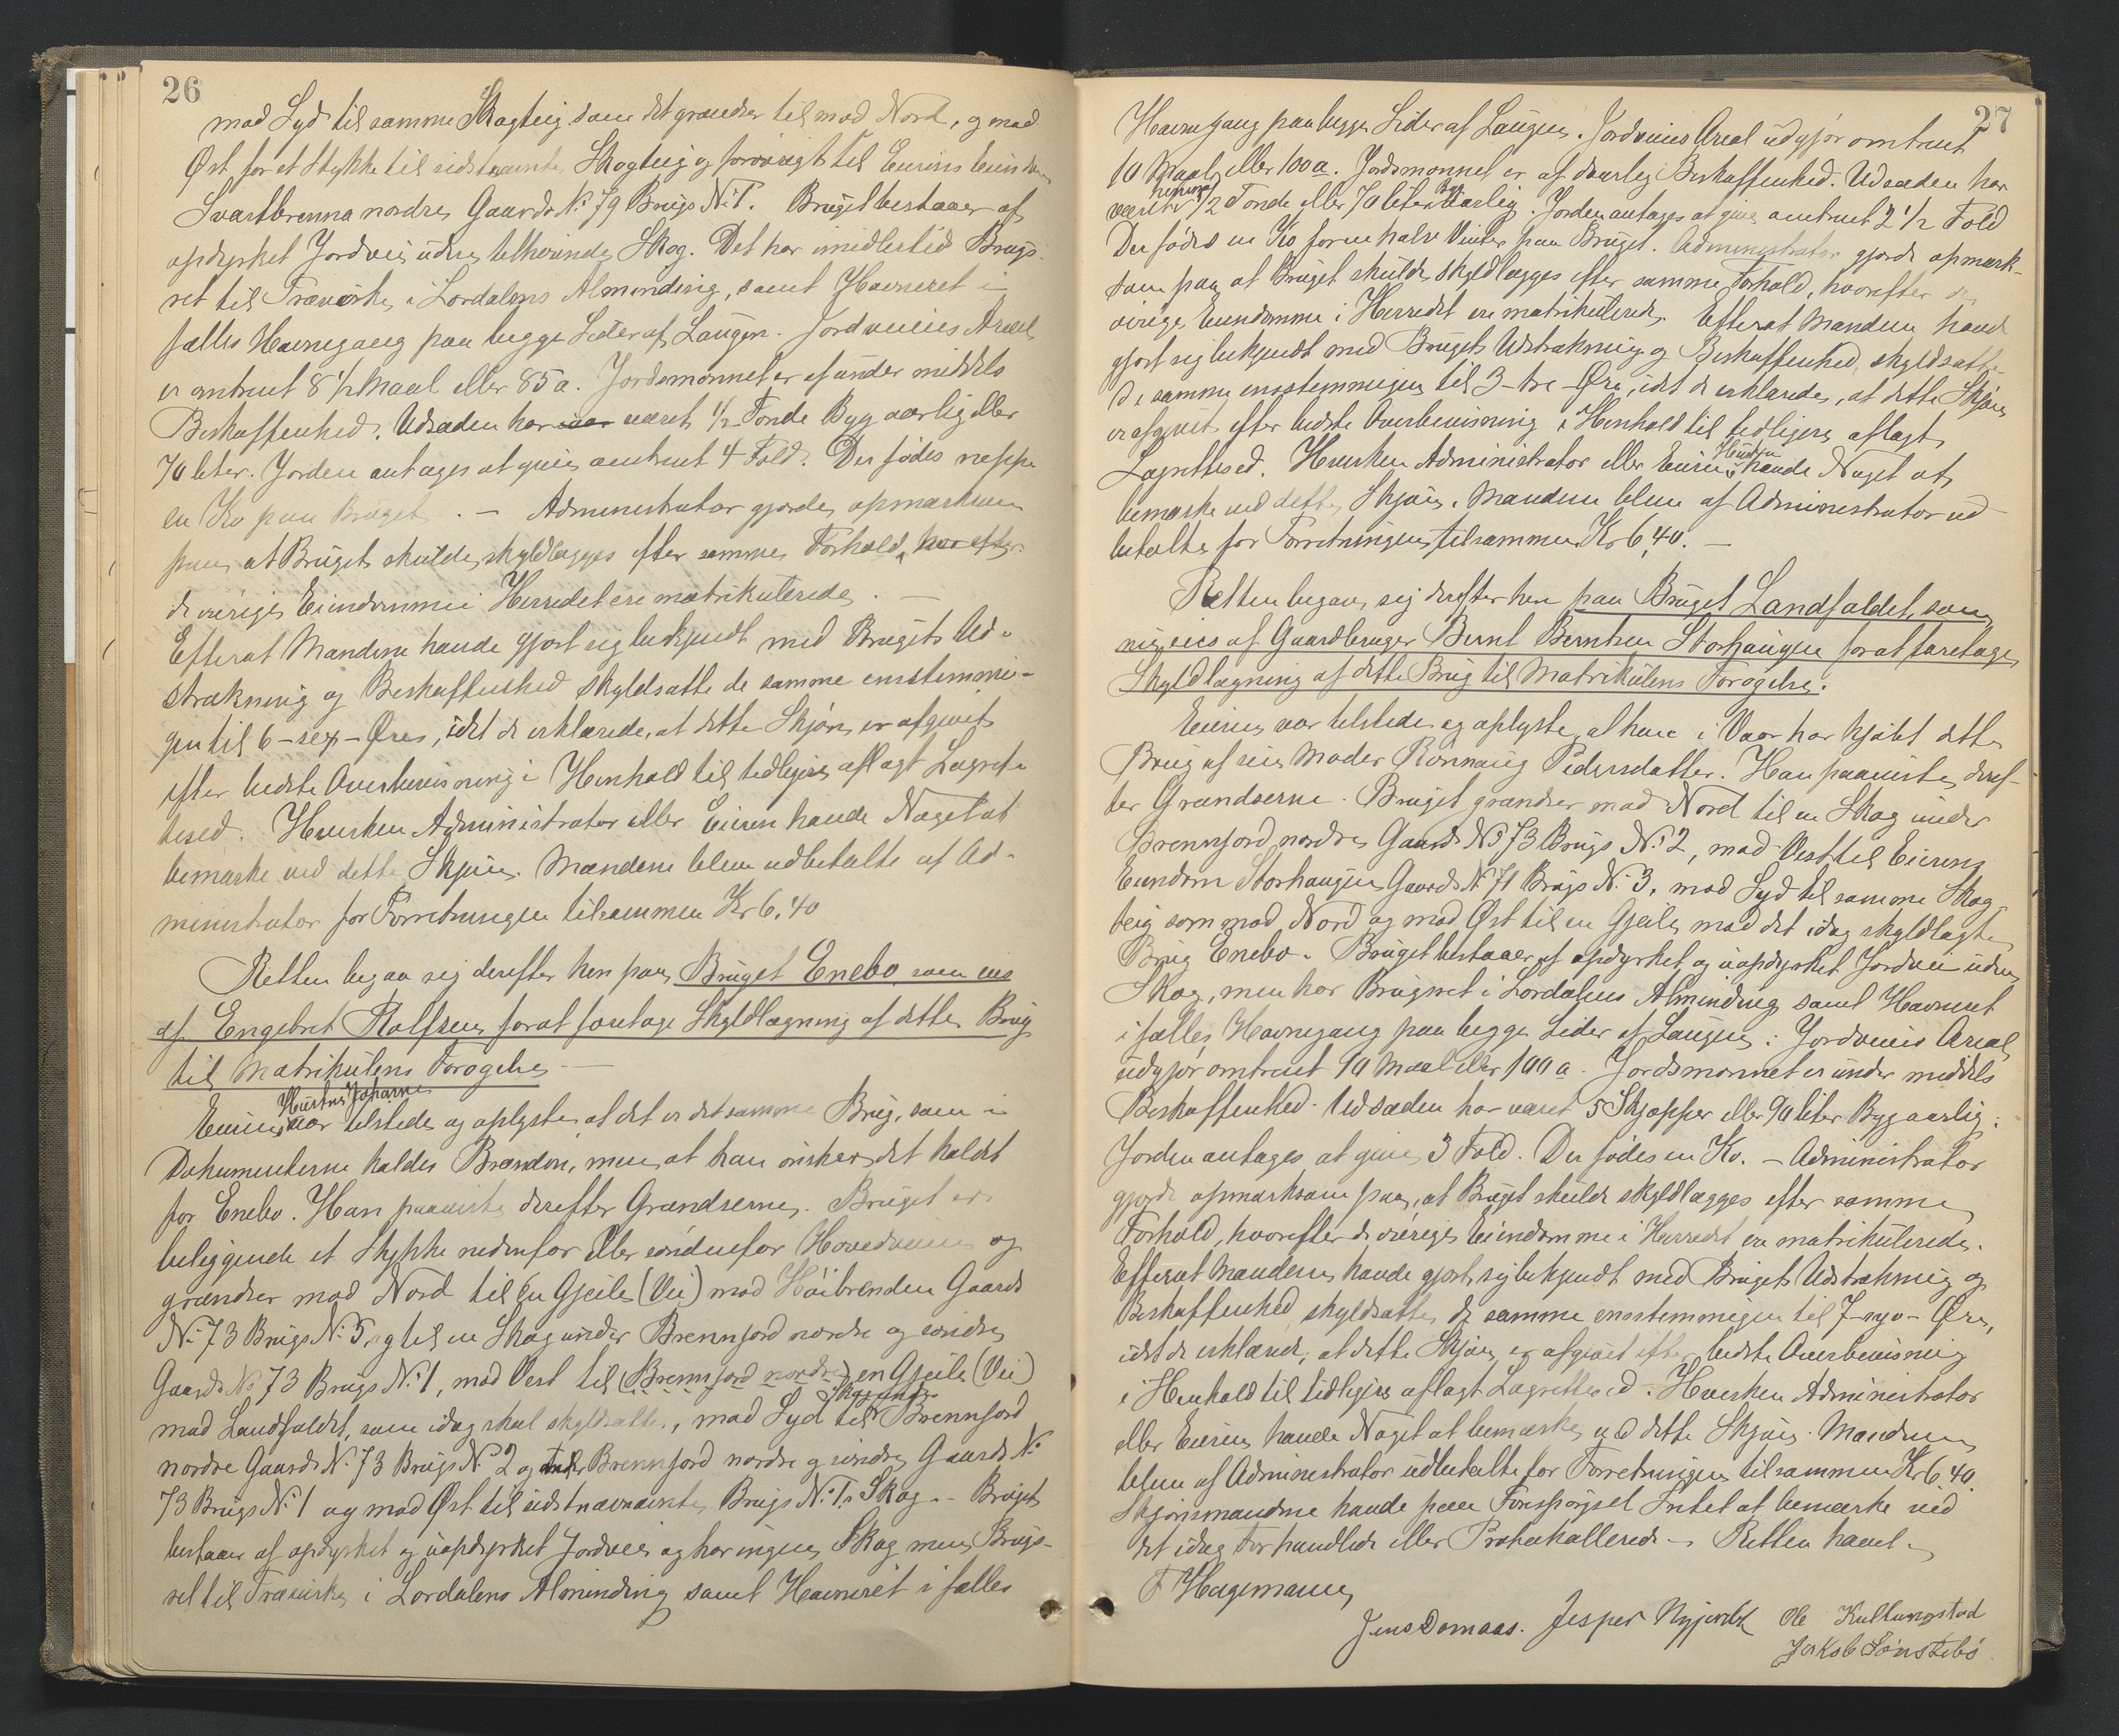 26
mod Syd til samme Skogteig som det grændser til mod Nord, og mod
Øst for et Stykke til sidstnævnte Skogteig og forøvrigt til Eierens Eiendom
Svartbrenna nordre Gaards No 79 Brugs No 1. Bruget bestaaer af
opdyrket Jordvei uden tilhørende Skog. Det har imidlertid Brugs-
ret til Trævirke i Lordalens Almending, samt Havneret i
fælles Havnegang paa begge Sider af Laugen. Jordveiens Areal
er omtrent 8 1/2 Maal eller 85 a. Jordsmonnet er af under middels
Beskaffenhed. Udsæden har været 1/2 Tønde Byg aarlig eller
70 liter. Jorden antages at give omtrent 4 Fold. Der fødes neppe
en Ko paa Bruget. — Administrator gjorde opmærksom
paa, at Bruget skulde skyldlægges efter samme Forhold, hvorefter
de øvrige Eiendomme i Herredet ere matrikulerede. —
Efterat Mændene havde gjort sig bekjendt med Brugets Ud-
strækning og Beskaffenhed skyldsatte de samme enstemmi-
gen til 6 - sex - Øre, idet de erklærede, at dette Skjøn er afgivet
efter bedste Overbevisning i Henhold til tidligere aflagt Lagret-
tesed. Hverken Administrator eller Eieren havde Noget at
bemærke ved dette Skjøn. Mændene bleve udbetalte af Ad-
ministrator for Forretningen tilsammen Kr 6,40
Retten begav sig derefter hen paa Bruget Enebo som eies
af Engebret Rolfsen forat foretage Skyldlægning af dette Brug
til Matrikulens Forøgelse —
Hustru Johanne
Eierens var tilstede og oplyste at det er det samme Brug, som i
Dokumenterne kaldes Brændøn, men at han ønsker det kaldet
for Enebo. Han paaviste derefter Grændserne. Bruget er
beliggende et Stykke nedenfor eller søndenfor Hovedveien og
grændser mod Nord til en Gjeile (Vei) mod Høibrenden Gaards
No 73 Brugs No 5, og til en Skog under Brennjord nordre og søndre
Gaards No 73 Brugs No 1, mod Vest til (Brennjord nordre) en Gjeile (Vei)
mod Landfaldet, som idag skal skyldsættes, mod Syd til Skog under Brennjord
nordre Gaards No 73 Brugs No 2 og Brennjord nordre og søndre Gaards No
73 Brugs No 1 og mod Øst til sidstnævnte Brugs No 1s Skog. - Bruget
bestaaer af opdyrket og uopdyrket Jordvei og har ingen Skog men Brugs-
ret til Trævirke i Lordalens Almending samt Havneret i fælles
27
Havnegang paa begge Sider af Laugen. Jordveiens Areal udgjør omtrent
10 Maal eller 100 a. Jordsmonnet er af daarlig Beskaffenhed. Udsæden har
været 1/2 Tønde eller 70 liter Byg aarlig. Jorden antages at give omtrent 2 1/2 Fold
Der fødes en Ko for en halv Vinter paa Bruget. Administrator gjorde opmærk-
som paa, at Bruget skulde skyldlægges efter samme Forhold, hvorefter de
øvrige Eiendomme i Herredet ere matrikulerede. Efterat Mændene havde
gjort sig bekjendt med Brugets Udstrækning og Beskaffenhed, skyldsatte
de samme enstemmigen til 3 - tre - Øre, idet de erklærede, at dette Skjøn
er afgivet efter bedste Overbevisning i Henhold til tidligere aflagt
Lagrettesed. Hverken Administrator eller Eierens Hustru havde Noget at
bemærke ved dette Skjøn. Mændene bleve af Administrator ud-
betalte for Forretningen tilsammen Kr 6,40. —
Retten begav sig derefter hen paa Bruget Landfaldet, som
nu eies af Gaardbruger Bernt Berntsen Storhaugen forat foretage
Skyldlægning af dette Brug til Matrikulens Forøgelse.
Eieren var tilstede og oplyste, at han i Vaar har kjøbt dette
Brug af sin Moder Rønnaug Pedersdatter. Han paaviste deref-
ter Grændserne. Bruget grændser mod Nord til en Skog under
Brennjord nordre Gaards No 73 Brugs No 2, mod Vest til Eierens
Eiendom Storhaugen Gaards No 71 Brugs No 3, mod Syd til samme Skog-
teig som mod Nord og mod Øst til en Gjeile mod det idag skyldlagte
Brug Enebo. Bruget bestaaer af opdyrket og uopdyrket Jordvei uden
Skog, men har Brugsret i Lordalens Almending samt Havneret
i fælles Havnegang paa begge Sider af Laugen. Jordveiens Areal
udgjør omtrent 10 Maal eller 100 a. Jordsmonnet er under middels
Beskaffenhed. Udsæden har været 5 Skjæpper eller 90 liter Byg aarlig.
Jorden antages at give 3 Fold. Der fødes en Ko. — Administrator
gjorde opmærksom paa, at Bruget skulde skyldlægges efter samme
Forhold, hvorefter de øvrige Eiendomme i Herredet ere matrikulerede.
Efterat Mændene havde gjort sig bekjendt med Brugets Udstrækning og
Beskaffenhed skyldsatte de samme enstemmigen til 7 - syv - Øre,
idet de erklærede, at dette Skjøn er afgivet efter bedste Overbevisning
i Henhold til tidligere aflagt Lagrettesed. Hverken Administrator
eller Eieren havde Noget at bemærke ved dette Skjøn. Mændene
bleve af Administrator udbetalte for Forretningen tilsammen Kr 6.40.
Skjønsmændene havde paa Forespørgsel Intet at bemærke ved
det idag Forhandlede eller Protokollerede. — Retten hævet.
F Hagemann
Jens Domaas. Jesper Nyjordet Ole Kullungstad
Jakob Tønstebø